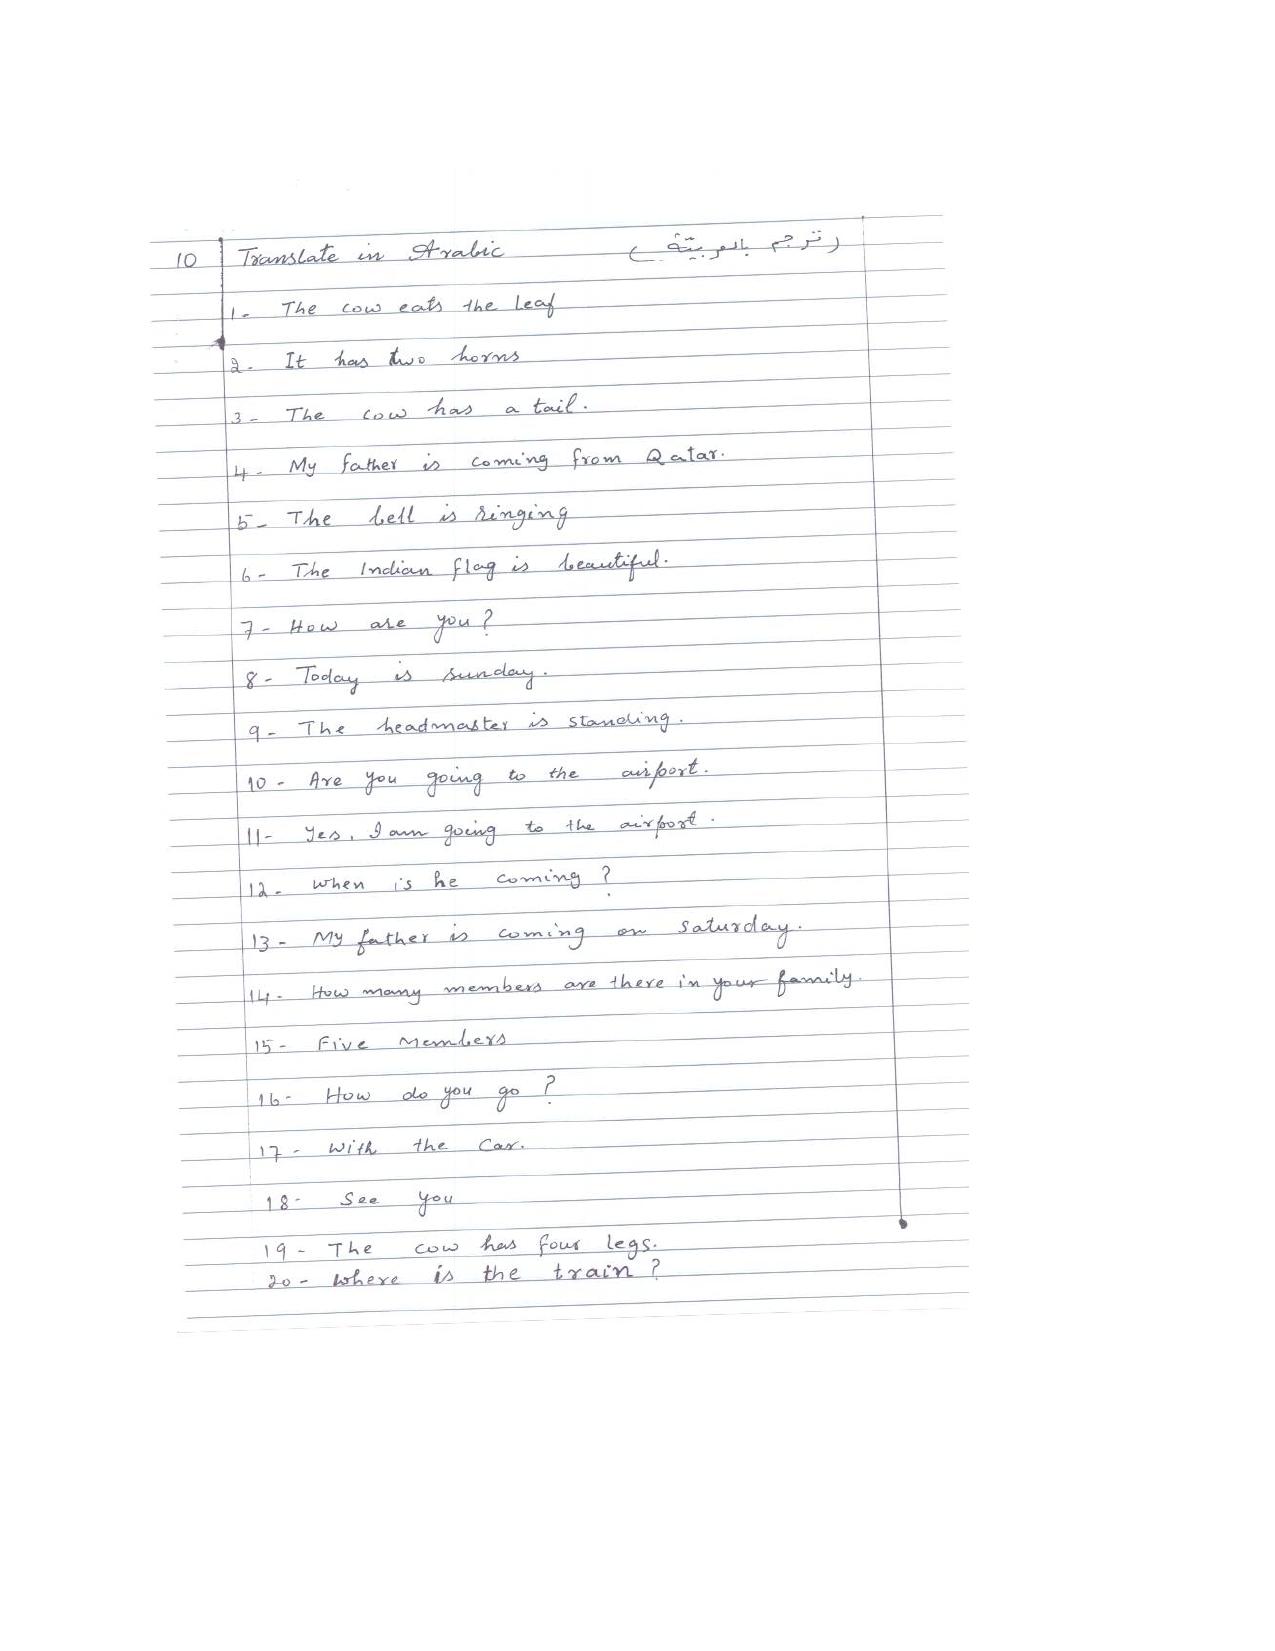 10 Translate in Arabic (ترجم بالعربيّة)
1- The cow eats the leaf
2- It has two horns
3- The cow has a tail.
4- My father is coming from Qatar.
5- The bell is ringing
6- The Indian flag is beautiful.
7- How are you?
8- Today is sunday.
9- The headmaster is standing.
10- Are you going to the airport.
11- Yes, I am going to the airport.
12- When is he coming?
13- My father is coming on saturday.
14- How many members are there in your family.
15- Five Members
16- How do you go?
17- With the Car.
18- See you
19- The cow has four legs.
20- Where is the train?